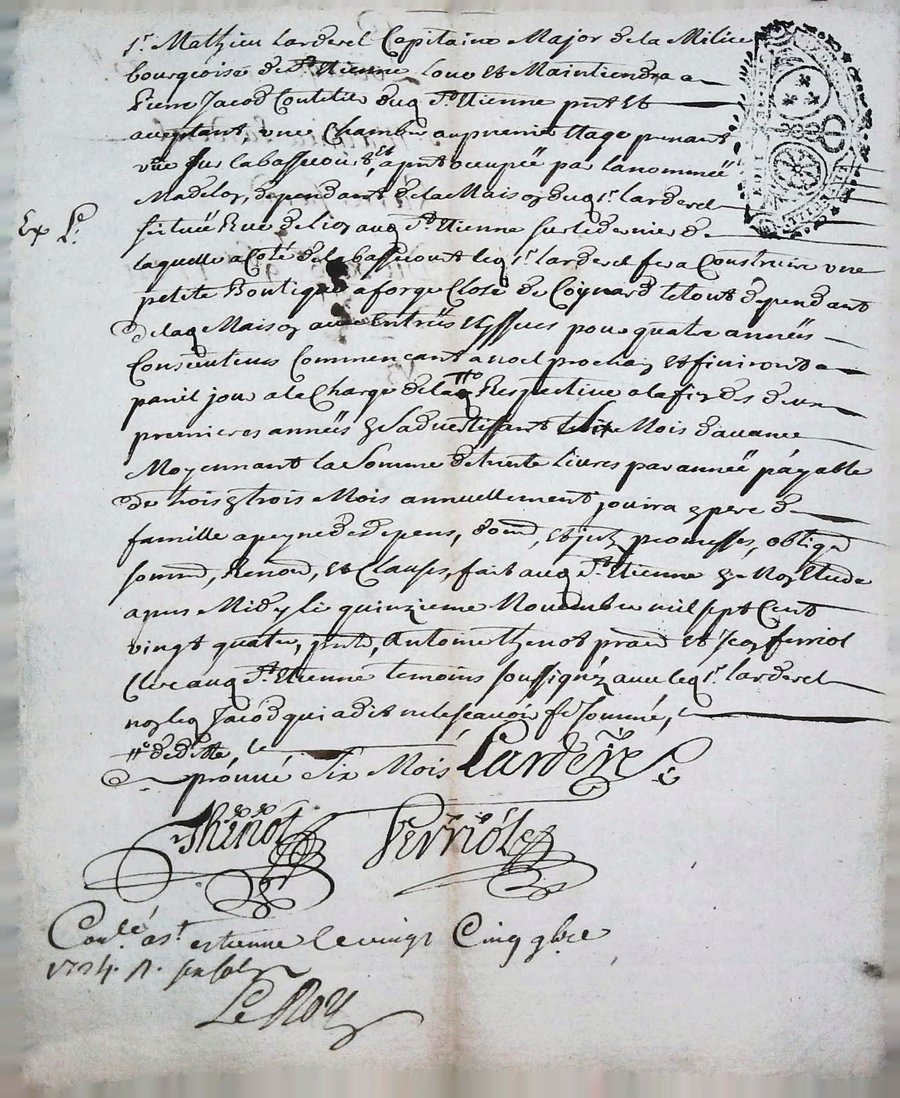 Sr. Mathieu Larderel Capitaine Major de la Milice
bourgeoise de St. Etienne Loue et Maintiendra a
Pierre Jacod Coutelier dud St. Etienne pnt et
acceptant une Chambre au premier Etage prenant
vüe sur la basse cour et apnt occupeé par la nommeé
Madelon, dependant de la Maison dud Sr. larderel
Ex Pe.
scituëe Rue de lion aud St. Etienne sur le dernier de
laquelle a Coté de la basse court led Sr. larderel fera Construire une
petite Boutique a forge Close de Coynard le tout dependant
de lad Maison avec Entreés et yssues pour quatre anneés
Consecutives Commencant a noel prochain et finiront a
pareil jour a la Charge de la Respective a la fin des deux
premieres anneés en s'advertissant Mois d'avance
Moyennant la Somme de trente livres par anneé payable
de trois en trois Mois annuellement jouira en pere de
famille a peyne de depens, dom, et promesses, oblige
soum, Renon, et Clauses, fait aud St. Etienne en Etude
apres Midy le quinzieme Novembre mil sept Cent
vingt quatre, pnts, Antoine thenot et Jean ferriol
Clerc aud St. Etienne temoins soussignéz avec led Sr. larderel
non led Jacod qui a dit ne scavoir f de sommé,
prouvé Six Mois Larderel
Thénot Ferriol
Conlé. a St. estienne le vingt Cinq 9bre
1724. R.
Le Roy